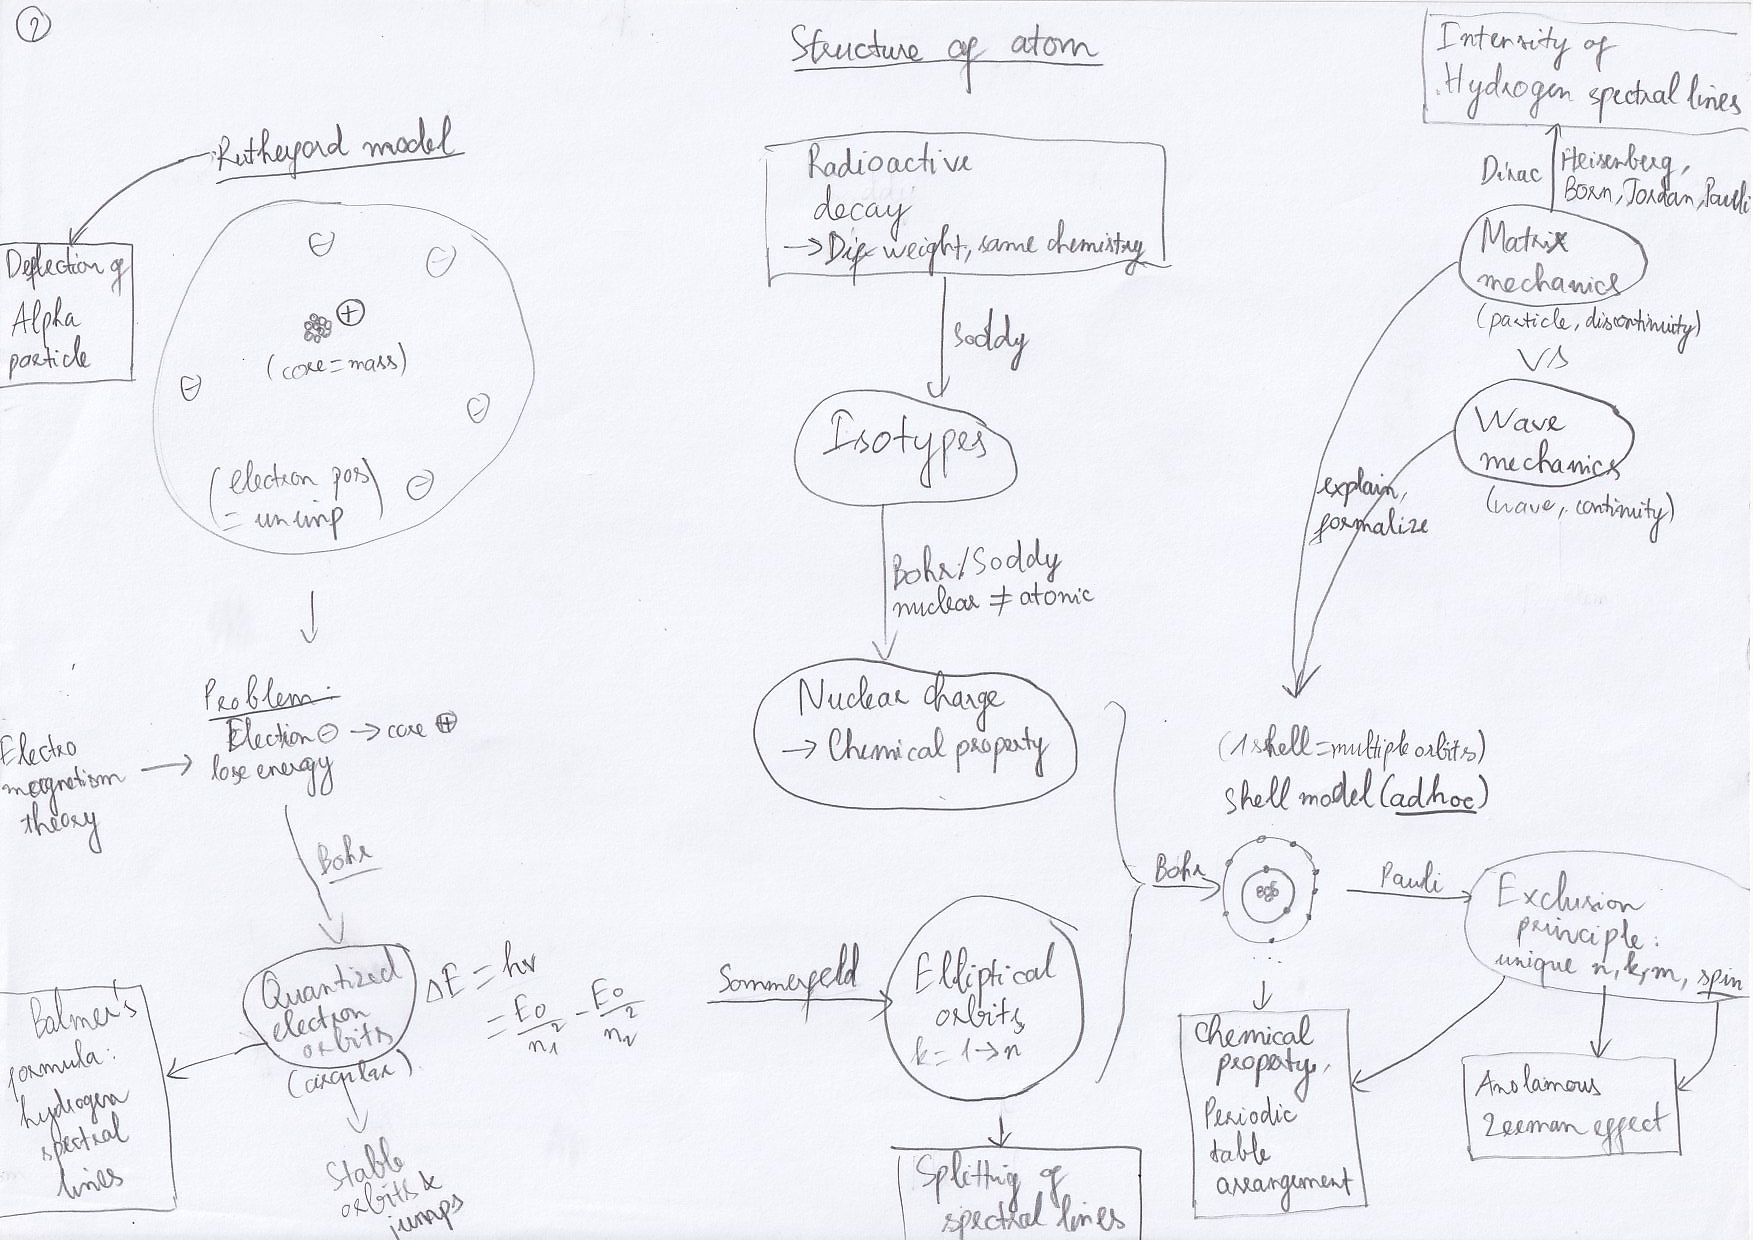 2
Structure of atom
Rutherford model
Deflection of
Alpha
particle
(core = mass)
(electron pos
= unimp)
Problem:
Electron ⊖ → core ⊕
lose energy
Electro
magnetism
theory
Bohr
Quantized
electron
orbits
(circular)
ΔE = hν
= E0/n1² - E0/n2²
Balmer's
formula:
hydrogen
spectral
lines
Stable
orbits &
jumps
Radioactive
decay
→ Dif weight, same chemistry
Soddy
Isotypes
Bohr/Soddy
nuclear ≠ atomic
Nuclear charge
→ Chemical property
Sommerfeld
Elliptical
orbits
k = 1 → n
Splitting of
spectral lines
Intensity of
Hydrogen spectral lines
Dirac
Heisenberg,
Born, Jordan, Pauli
Matrix
mechanics
(particle, discontinuity)
VS
Wave
mechanics
(wave, continuity)
explain,
formalize
(1 shell = multiple orbits)
shell model (adhoc)
Bohr
...
Pauli
Exclusion
principle:
unique n, k, m, spin
Chemical
property,
Periodic
table
arrangement
Anolamous
Zeeman effect